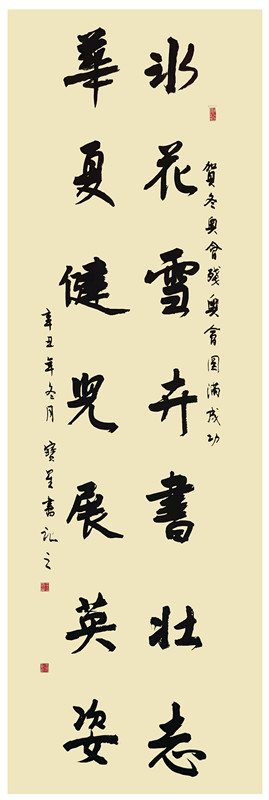 賀冬奧會殘奧會圓滿成功
冰花雪卉書壯志
華夏健兒展英姿
辛丑年冬月 寶星書記之